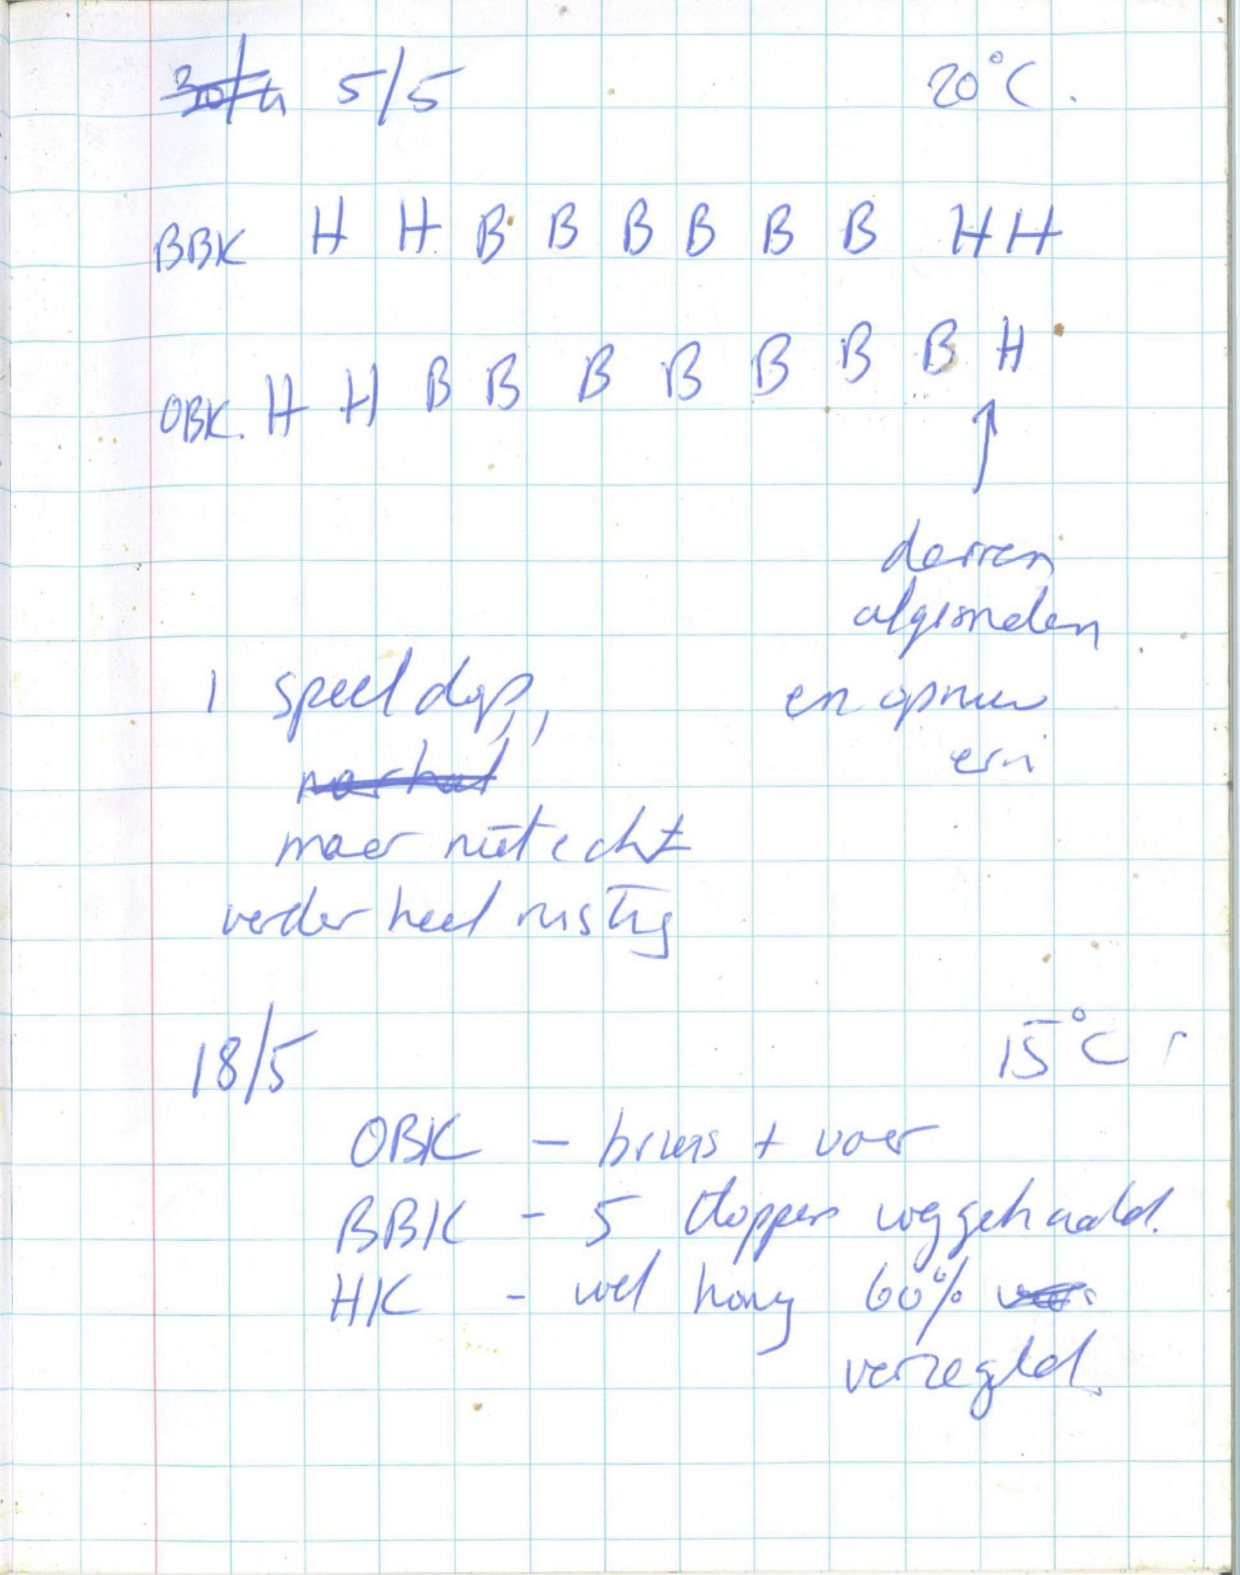 30/4 5/5 20°C.
BBK H H B B B B B B H H
OBK. H H B B B B B B B H
darren
afgesneden
en opnieuw
erin
1 speeldop,
maar niet echt
verder heel rustig
18/5 15°C
OBK - broed + voer
BBK - 5 doppen weggehaald.
HK - wel honing 60%
verzegeld.